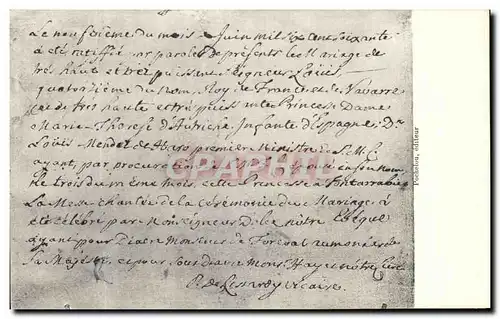 Le neufvieme du mois Juin mil six cent soixante
a été ratiffié par paroles de présents le Mariage de
très haute et très puissant seigneur Loüis
quatorzième du nom, Roy de France et de Navarre
et de très haute et très puissante Princesse Dame
Marie Therese d'Autriche, Infante d'Espagne, Dn
Loüis Mendez de Haro premier Ministre de S. M. C.
ayant, par procure son nom
le trois du même mois, cette Princesse a Fontarrabie
La Messe chantée de la cérémonie du Mariage a
été célébré par Monseigneur De notre Evêque
ayant pour Diacre Monsieur de aumonier de
Sa Majesté, et pour Sousdiacre Mons. Haye notre
P. de vicaire.
Pocholou, éditeur